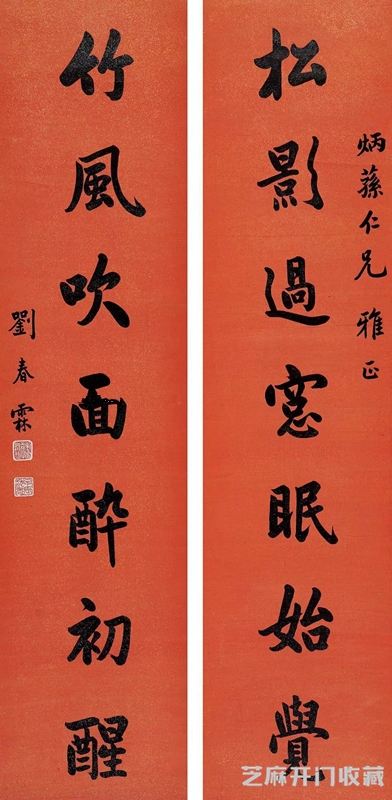 炳蓀仁兄 雅正
松影過窓眠始覺
竹風吹面醉初醒
劉春霖
芝麻开门收藏